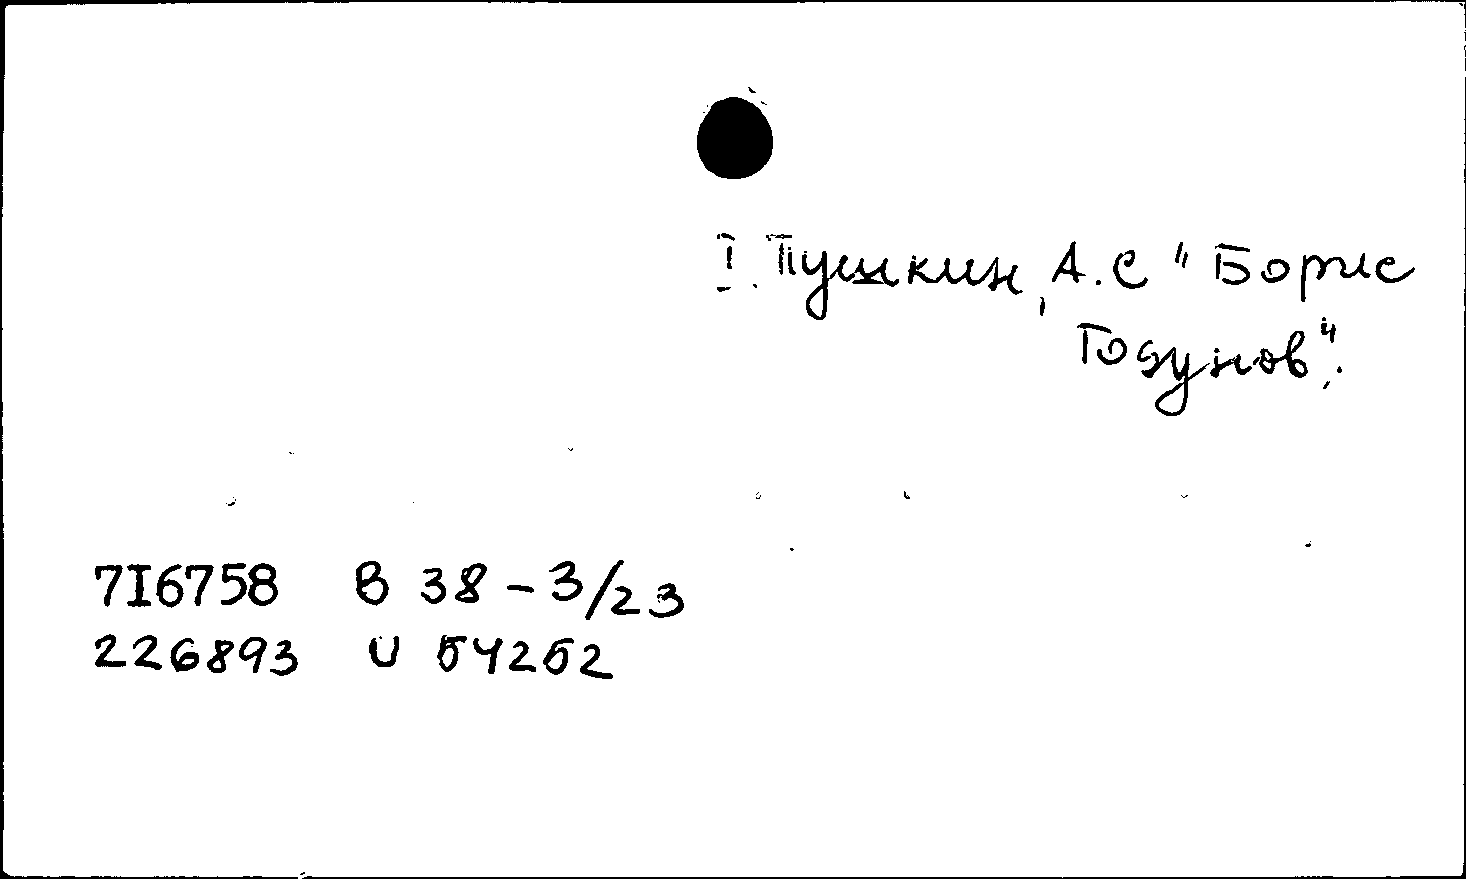 I. Пушкин, А.С "Борис
Годунов".
7I6758 В 38-3/23
226893 U 54252